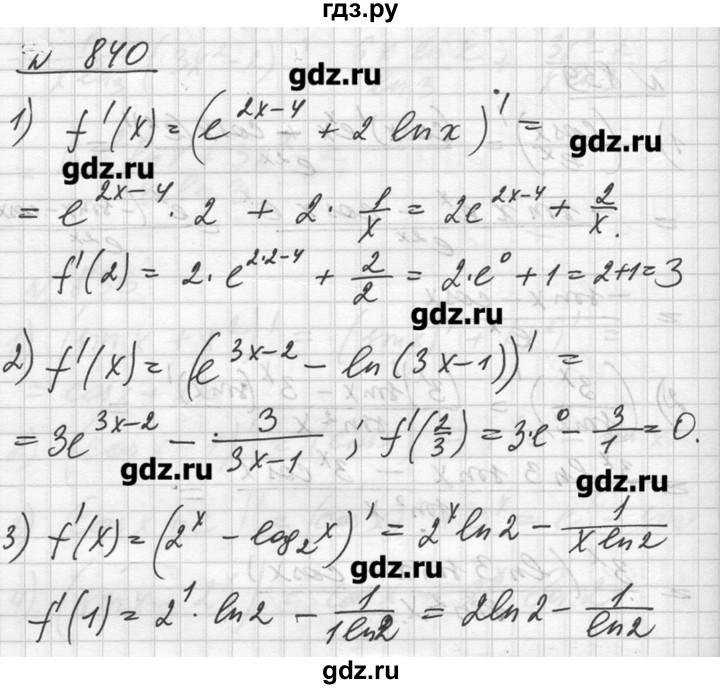 гдз.ру
№ 840
gdz.ru
1) f'(x) = (e^{2x-4} + 2 ln x)' =
gdz.ru
gdz.ru
= e^{2x-4} · 2 + 2 · 1/x = 2e^{2x-4} + 2/x.
f'(2) = 2 · e^{2·2-4} + 2/2 = 2·e^0 + 1 = 2+1 = 3
gdz.ru
2) f'(x) = (e^{3x-2} - ln(3x-1))' =
= 3e^{3x-2} - 3/(3x-1) ; f'(2/3) = 3·e^0 - 3/1 = 0.
gdz.ru
gdz.ru
3) f'(x) = (2^x - log_2 x)' = 2^x ln2 - 1/(x ln2)
gdz.ru
f'(1) = 2^1 · ln2 - 1/(1 ln2) = 2ln2 - 1/ln2
gdz.ru